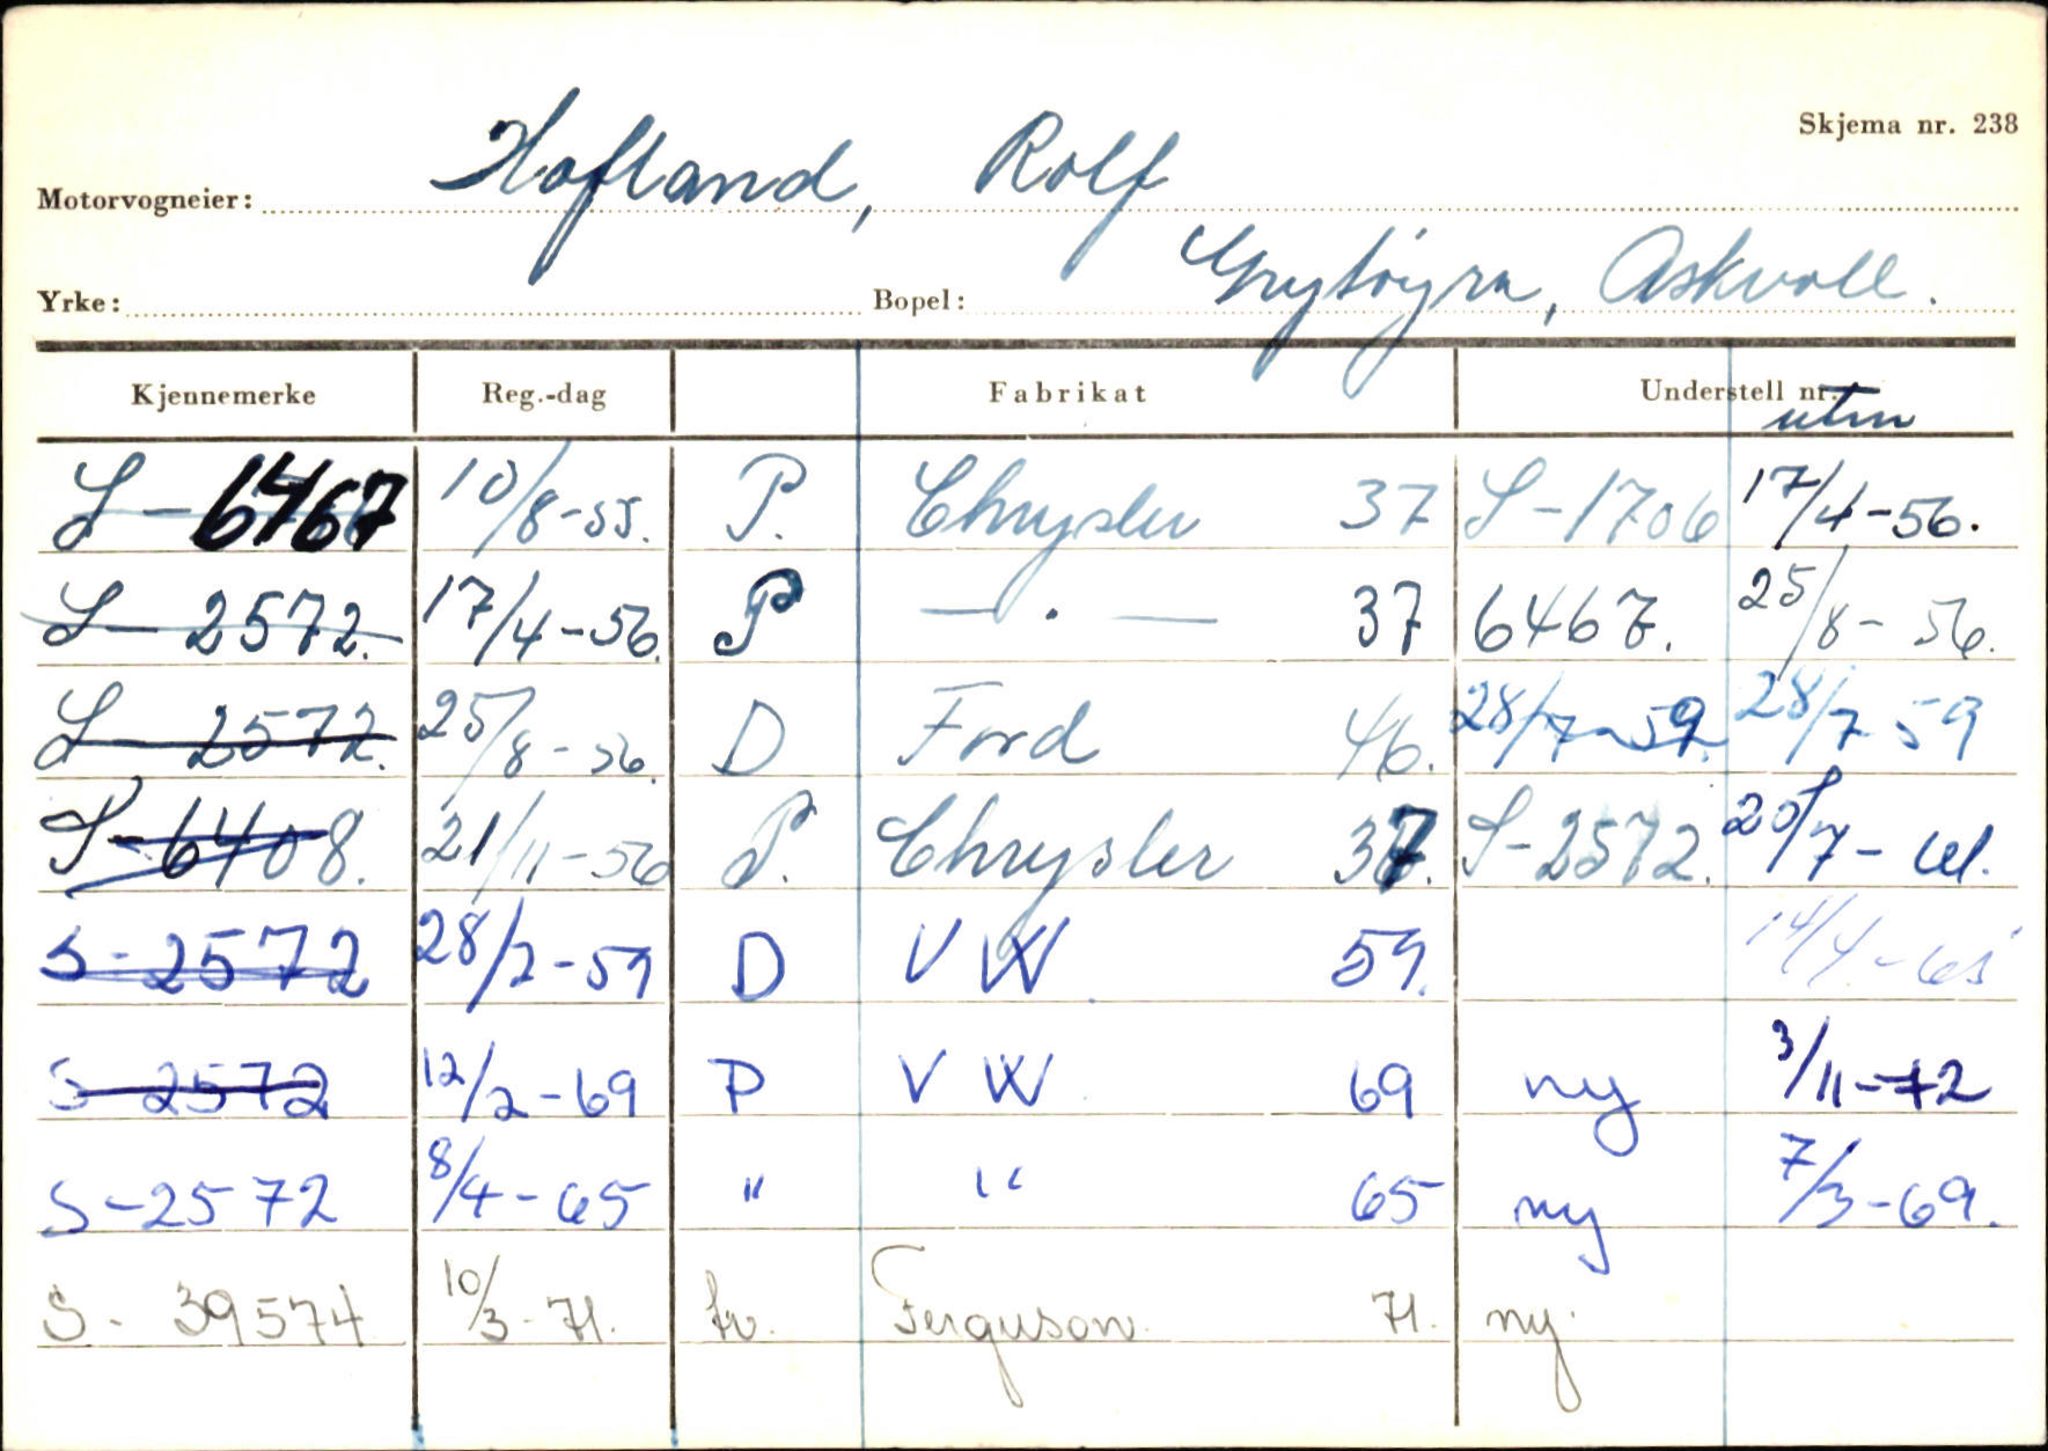 Skjema nr. 238
Motorvogneier: Hofland, Rolf
Yrke: Bopel: Grytöyra, Askvoll.
Kjennemerke Reg.-dag Fabrikat Understell nr. utm
S-6467 10/8-55. P. Chrysler 37 S-1706 17/4-56.
S-2572. 17/4-56. P — . — 37 6467. 25/8-56.
S-2572. 25/8-56. D Ford 46. 28/7-59. 28/7 59
S-6408. 21/11-56 P. Chrysler 37. S-2572. 20/7-61.
S-2572 28/7-59 D VW 59. 14/4-65
S-2572 12/2-69 P VW 69 ny 3/11-72
S-2572 8/4-65 " " 65 ny 7/3-69.
S-39574 10/3-71. tr. Ferguson 71. ny.